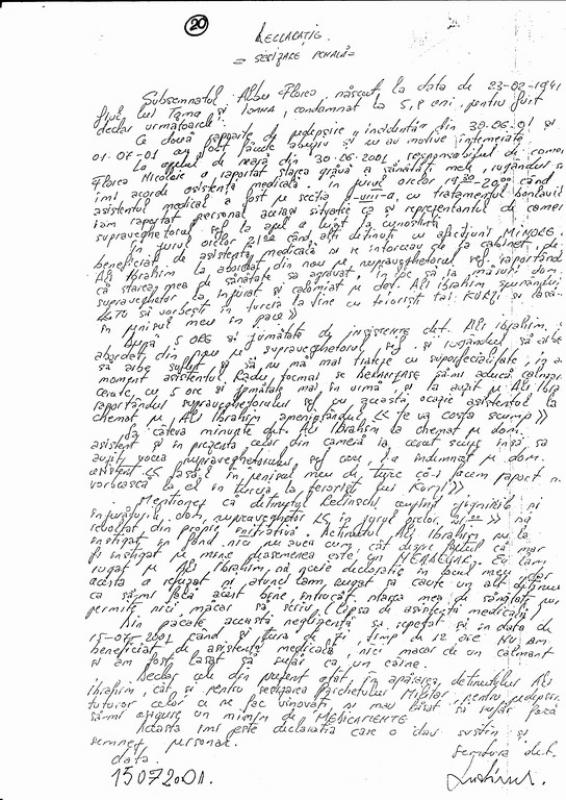 20
DECLARAȚIE
= SESIZARE PENALĂ =
Subsemnatul Albu Florea, născut la data de 23-02-1941
fiul lui Toma și IOANA, condamnat la 5, ani, pentru furt
declar următoarele:
Cele două rapoarte de pedepsire "incidentă" din 30.06.01 și
01-07-01 au fost făcute abuziv și nu au motive intemeiate
La apelul de seară din 30.06.2001 responsabilul de camera
Florea Nicolaie a raportat starea gravă a sănătății mele, rugându-l să
îmi acorde asistență medicală. În jurul orelor 19:30-20:00 când
asistentul medical a fost pe secția, cu tratamentul bolnavilor
i-am raportat personal aceiași situație ca și reprezentant de camera
supraveghetorul șef la apel a luat la cunoștință
În jurul orelor 21:00 când alți deținuți cu afecțiuni MINORE,
beneficiau de asistență medicală și se întorceau de la cabinet, det.
Ali Ibrahim l-a abordat din nou pe supraveghetorul șef, raportând
că starea mea de sănătate s-a agravat, în loc să ia măsuri dom.
supraveghetor l-a înjurat și calomniat pe det. Ali Ibrahim spunându-i
să vorbești în turcia la tine cu teroriști tăi KURZI și lasă-
în penisul meu în pace »
După 5 ORE și jumătate de insistențe det. Ali Ibrahim, a
abordat din nou pe supraveghetorul șef și rugându-l să aibe
să aibe suflet și să nu mă mai trateze cu superficialitate, în
moment asistentul Radu formal se să-mi aducă calmante
cerute, cu 5 ore și jumătate mai în urmă, și l-a auzit pe Ali Ibra
raportându supraveghetorului șef cu această ocazie asistentul l-a
chemat pe Ali Ibrahim amenințându-l « te va costa scump »
La câteva minute det. Ali Ibrahim l-a chemat pe dom.
asistent și în prezența celor din camera ia cerut scuze însă s-a
auzit vocea supraveghetorului șef care l-a indemnat pe dom.
asistent « lasă-l în penisul meu de turc că-i facem raport
vorbească la el în turcia la teroriști lui Kurzi »
Menționez că deținutul susțină
înjurături dom. supraveghetor în jurul orelor 21:00 » s-a
revoltat din proprie inițiativă. Deținutul Ali Ibrahim nu l-a
instigat în fond nici nu avea cum, cât despre faptul că m-ar
fi instigat pe mine deasemenea este un NEADEVĂR. Eu l-am
rugat pe Ali Ibrahim să scrie declarație în locul meu, însă
acesta a refuzat și atunci l-am rugat să caute un alt deținut
ca să-mi facă acest bine, întrucât starea mea de sănătate nu-mi
permite nici, măcar să scriu (lipsa de asistență medicală)
Din păcate această neglijență s-a repetat și în data de
15-07-2001 când și tura de zi, timp de 12 ore NU am
beneficiat de asistență medicală, nici macar de un calmant
și am fost lăsat să sufăr ca un câine.
Declar cele din prezent atât în apărarea deținutului Ali
Ibrahim, cât și pentru sesizarea Parchetului Militar, pentru pedepsirea
tuturor celor ce se fac vinovați și m-au lăsat să sufăr fără
să-mi asigure un minim de MEDICAMENTE
Aceasta îmi este declarația care o dau susțin și
semnez personal.
data. semnătura det.
15072001.